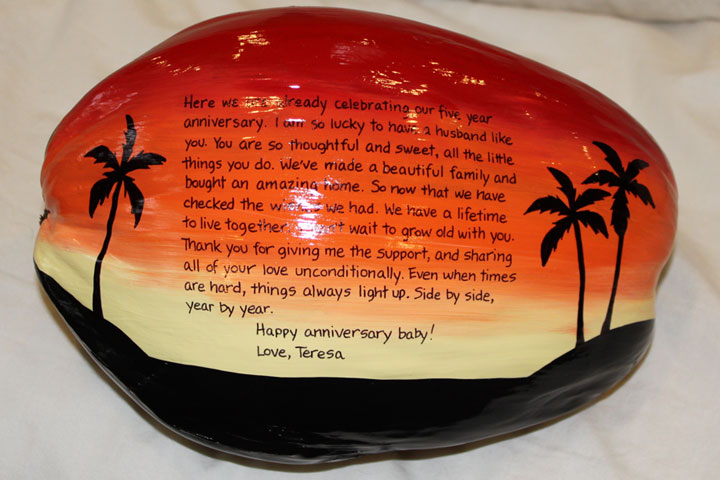 Here we are already celebrating our five year
anniversary. I am so lucky to have a husband like
you. You are so thoughtful and sweet, all the little
things you do. We've made a beautiful family and
bought an amazing home. So now that we have
checked the we had. We have a lifetime
to live together. wait to grow old with you.
Thank you for giving me the support, and sharing
all of your love unconditionally. Even when times
are hard, things always light up. Side by side,
year by year.
Happy anniversary baby!
Love, Teresa